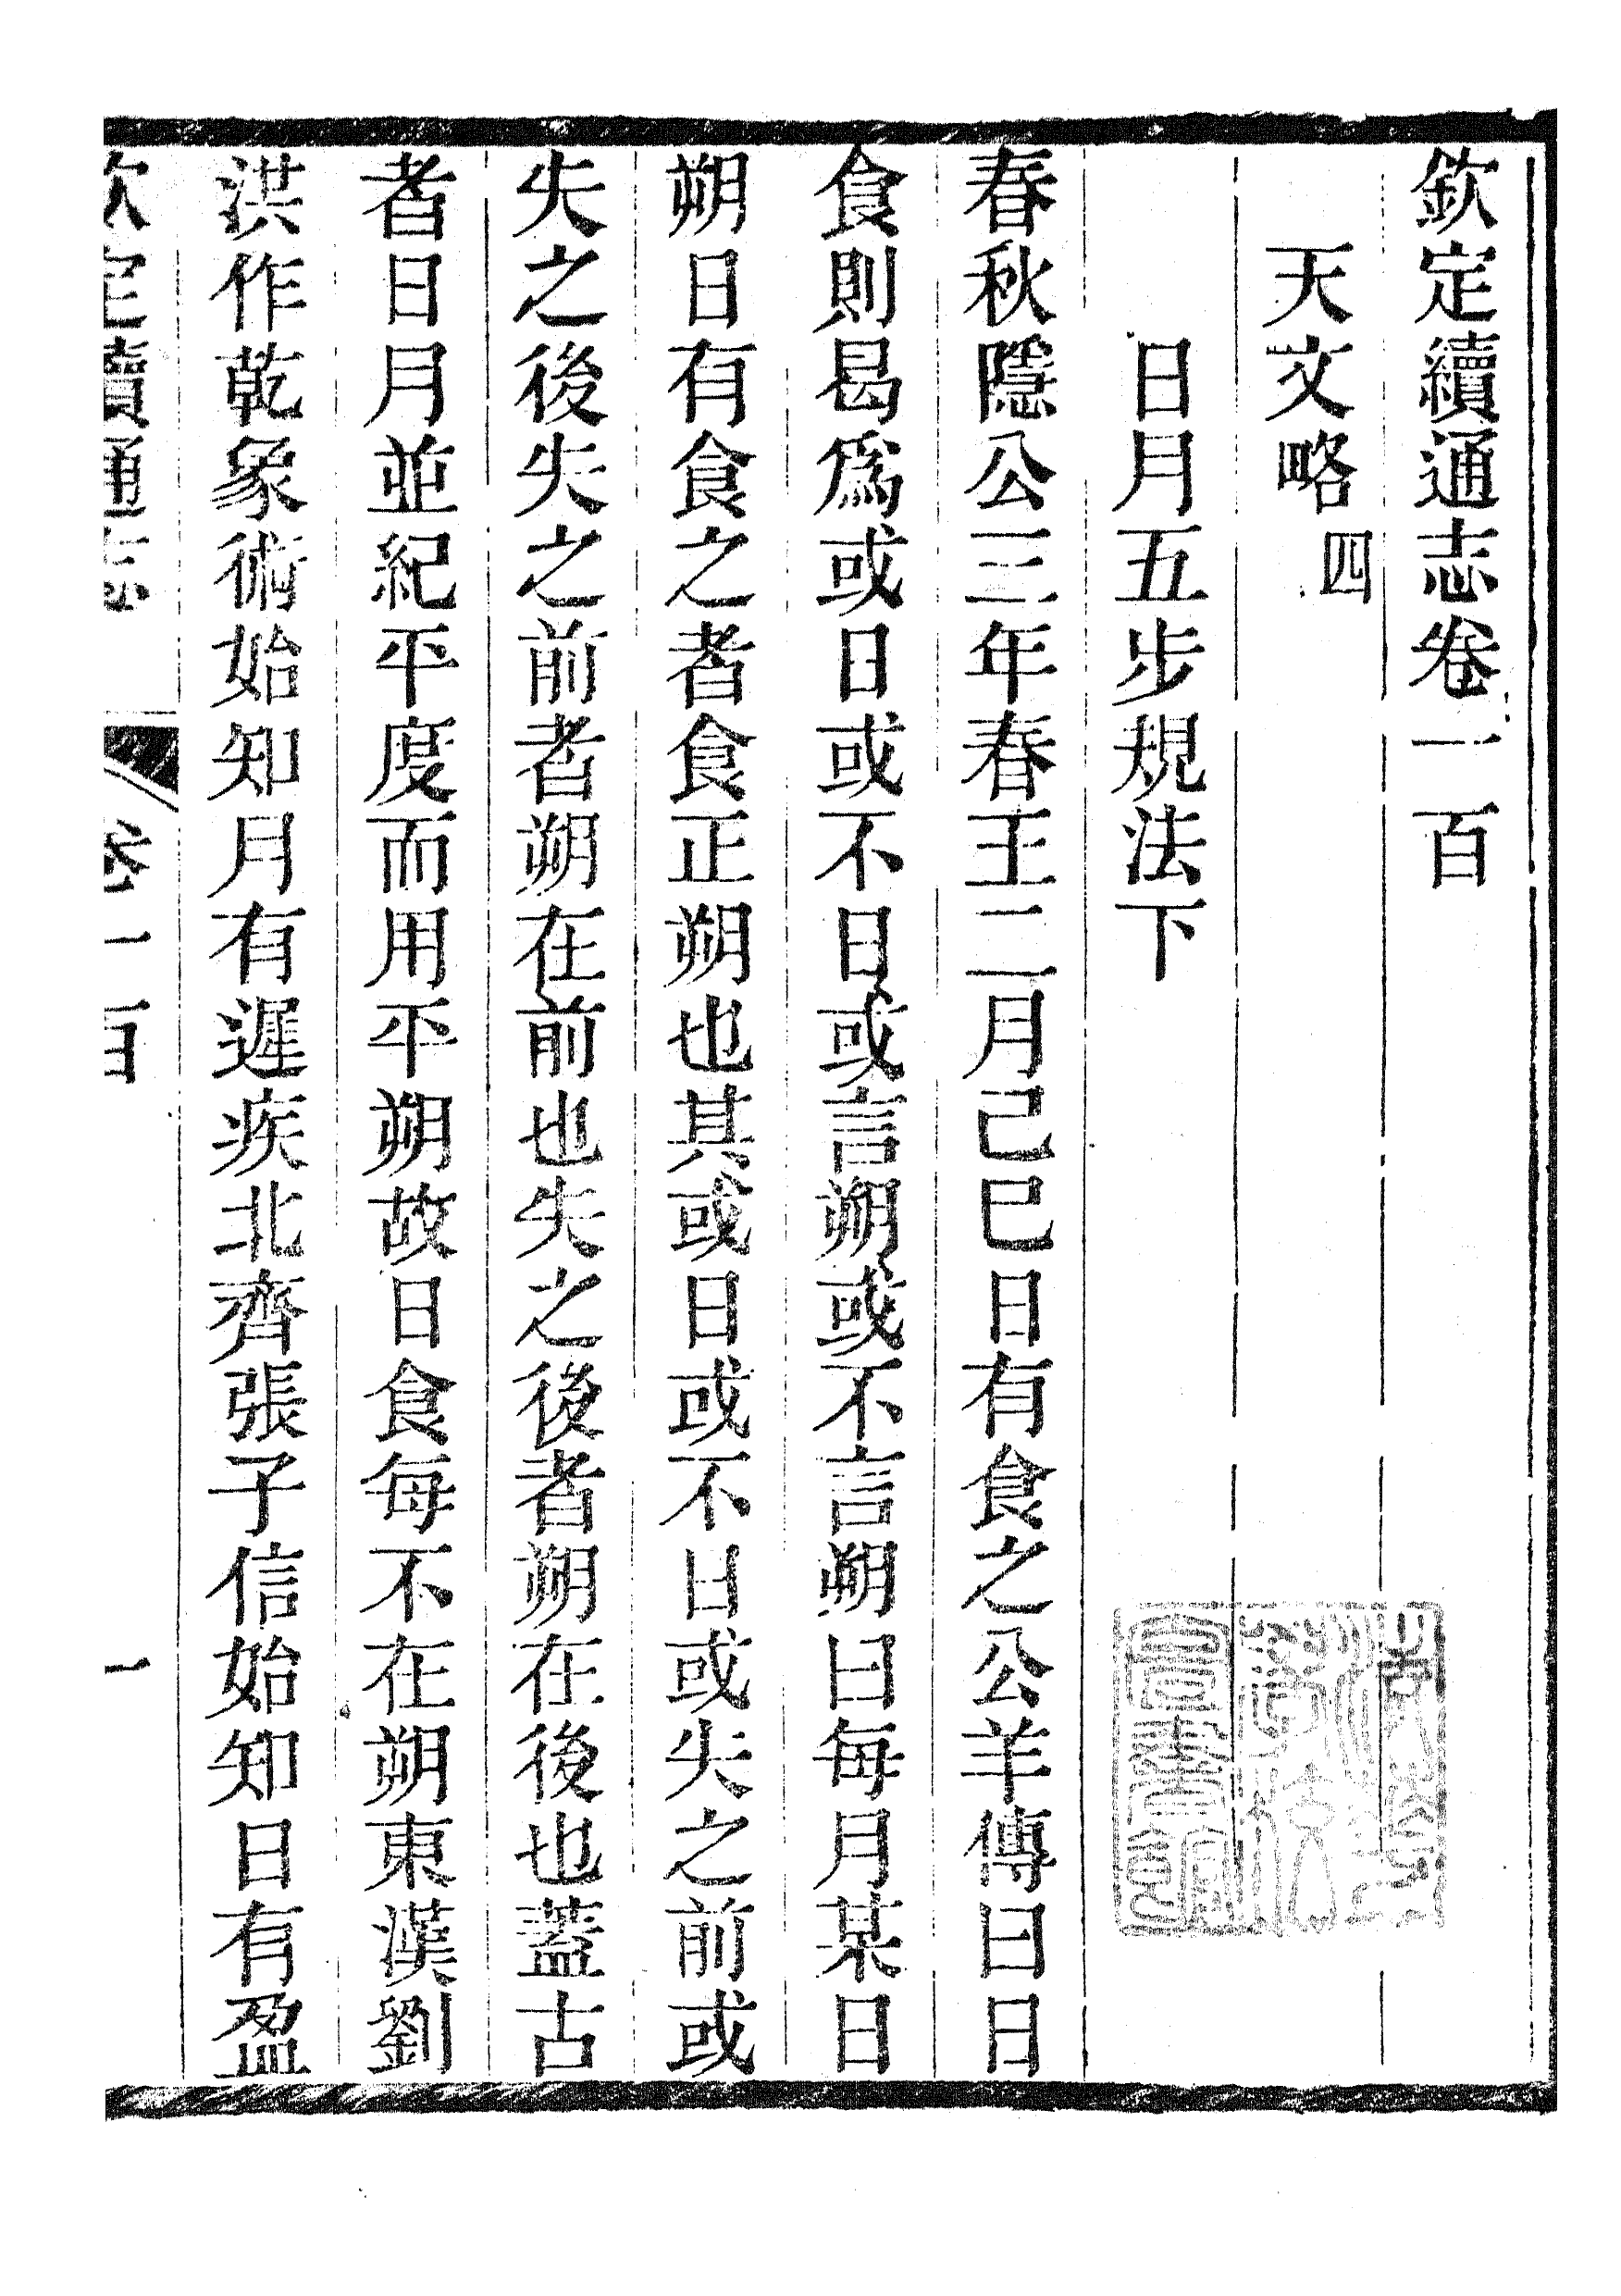 欽定續通志卷一百
天文略四
日月五步規法下
春秋隱公三年春王二月己巳日有食之公羊傳曰日
食則曷爲或日或不日或言朔或不言朔曰每月某日
朔日有食之者食正朔也其或日或不日或失之前或
失之後失之前者朔在前也失之後者朔在後也蓋古
者日月並紀平度而用平朔故日食每不在朔東漢劉
洪作乾象術始知月有遲疾北齊張子信始知日有盈
欽定續通志 卷一百 一